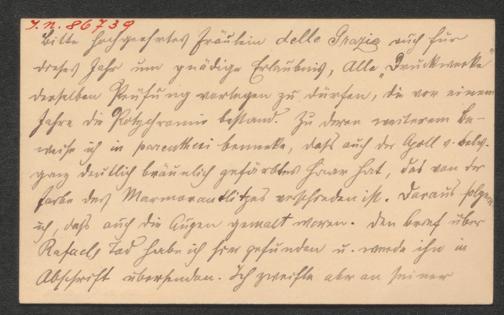 I.N. 86739
Bitte hochgeehrtes Fräulein delle Grazie auch für
dieses Jahr um gnädige Erlaubnis, Alle „Druckwerke"
derselben Prüfung vorlegen zu dürfen, die vor einem
Jahre die Polychromie bestand. Zu deren weiterem Be-
weise ich in parenthesi bemerke, daß auch der Apoll v. Belv.
ganz deutlich bräunlich gefärbtes Haar hat, das von der
Farbe des Marmorantlitzes verschieden ist. Daraus folgere
ich, daß auch die Augen gemalt waren. Den Brief über
Rafaels Tod habe ich hier gefunden u. werde ihn in
Abschrift übersenden. Ich zweifle aber an seiner